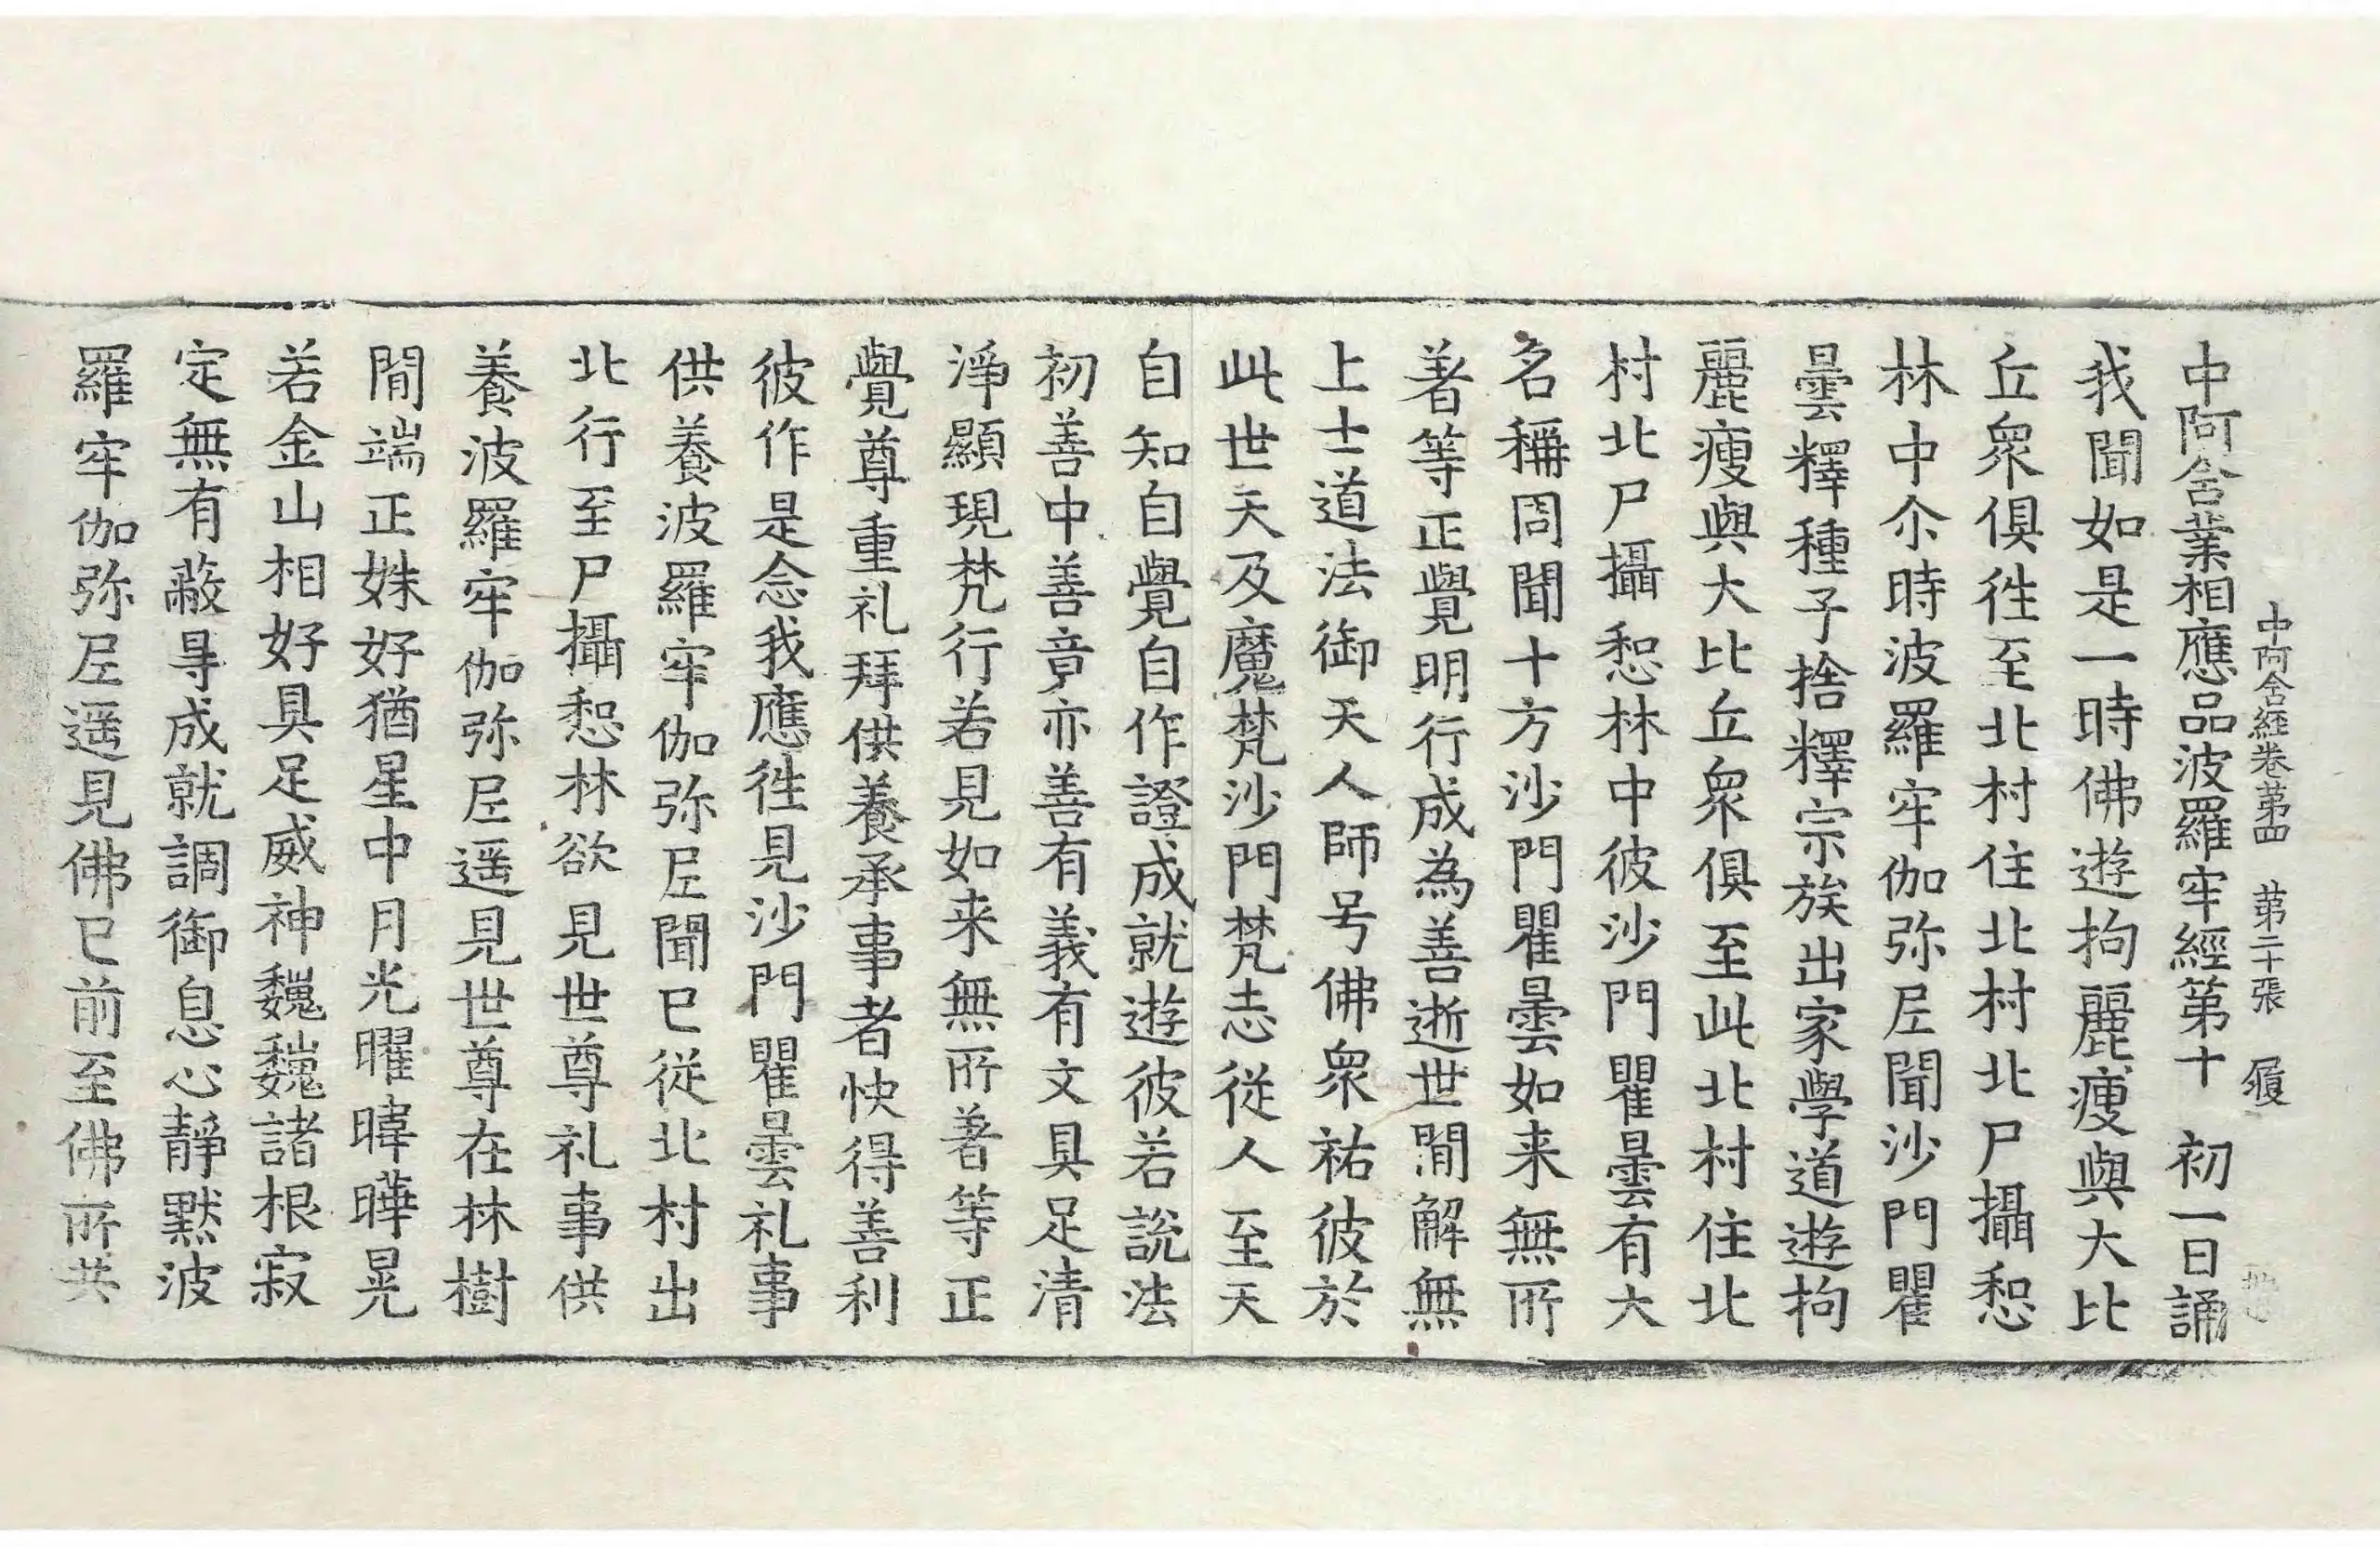 中阿含経卷苐四　苐二十張　履
中阿含業相應品波羅牢經第十　初一日誦
我聞如是一時佛遊拘麗瘦與大比
丘衆俱徃至北村住北村北尸攝惒
林中尒時波羅牢伽弥𡰱聞沙門瞿
曇釋種子捨釋宗族出家學道遊拘
麗瘦與大比丘衆俱至此北村住北
村北尸攝惒林中彼沙門瞿曇有大
名稱周聞十方沙門瞿曇如来無所
著等正覺明行成為善逝世閒解無
上士道法御天人師号佛衆祐彼於
此世天及魔梵沙門梵志從人至天
自知自覺自作證成就遊彼若說法
初善中善竟亦善有義有文具足清
淨顯現梵行若見如来無所著等正
覺尊重礼拜供養承事者快得善利
彼作是念我應徃見沙門瞿曇礼事
供養波羅牢伽弥𡰱聞已從北村出
北行至尸攝惒林欲見世尊礼事供
養波羅牢伽弥𡰱遥見世尊在林樹
閒端正姝好猶星中月光曜暐曄晃
若金山相好具足威神巍巍諸根寂
定無有蔽㝵成就調御息心靜默波
羅牢伽弥𡰱遥見佛已前至佛所共